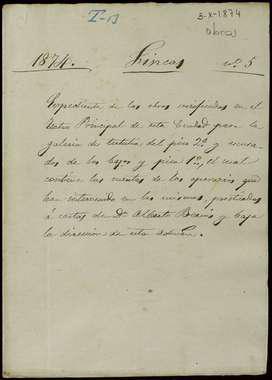 I-13
3-X-1874
obras
1874. Fincas nº 5
Expediente de las obras verificadas en el
Teatro Principal de esta Ciudad para la
galeria de tertulia del piso 2º y
de los bajos y piso 1º, el cual
contiene las cuentas de los operarios que
han intervenido en las mismas, practicadas
á costas de Dn. Alberto y bajo
la direccion de esta